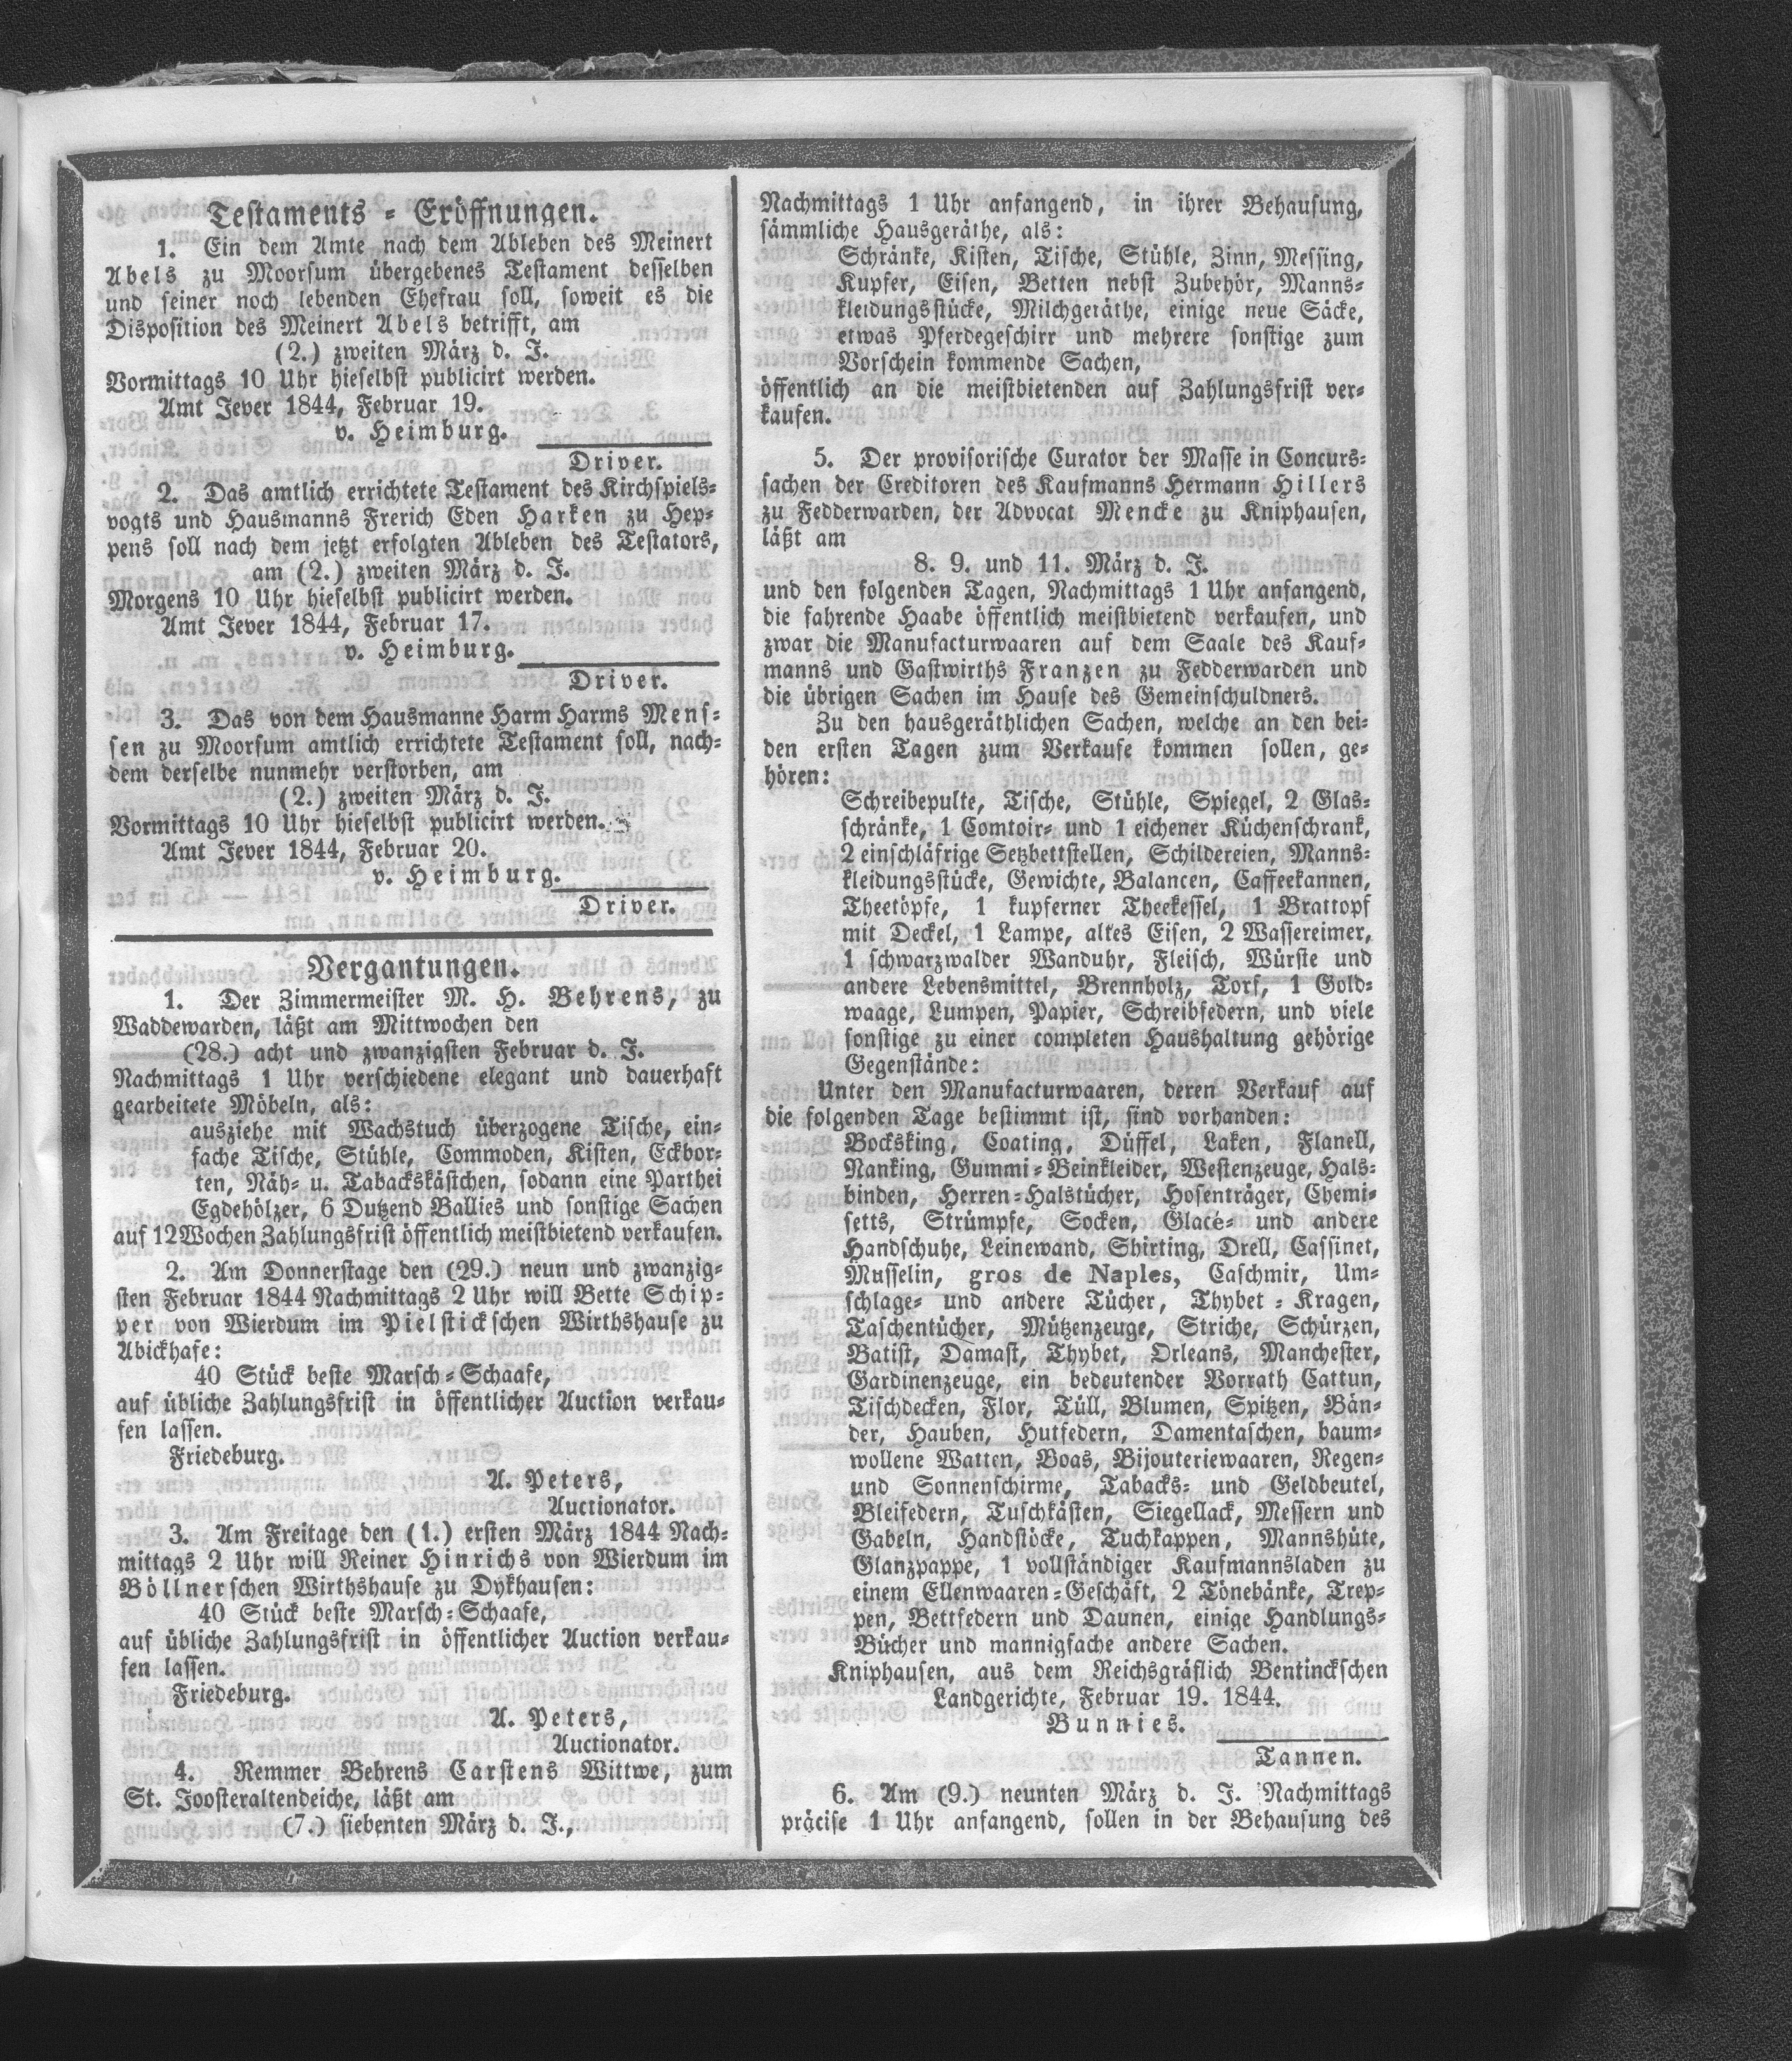 Testaments = Eröffnungen.
1. Ein dem Amte nach dem Ableben des Meinert
Abels zu Moorsum übergebenes Testament desselben
und seiner noch lebenden Ehefrau soll, soweit es die
Disposition des Meinert Abels betrifft, am
(2.) zweiten März d. J.
Vormittags 10 Uhr hieselbst publicirt werden.
Amt Jever 1844, Februar 19.
v. Heimburg.
Driver.
2. Das amtlich errichtete Testament des Kirchspiels=
vogts und Hausmanns Frerich Eden Harken zu Hep=
pens soll nach dem jetzt erfolgten Ableben des Testators,
am (2.) zweiten März d. J.
Morgens 10 Uhr hieselbst publicirt werden.
Amt Jever 1844, Februar 17.
v. Heimburg.
Driver.
3. Das von dem Hausmanne Harm Harms Mens=
sen zu Moorsum amtlich errichtete Testament soll, nach=
dem derselbe nunmehr verstorben, am
(2.) zweiten März d. J.
Vormittags 10 Uhr hieselbst publicirt werden.
Amt Jever 1844, Februar 20.
v. Heimburg.
Driver.
Vergantungen.
1. Der Zimmermeister M. H. Behrens, zu
Waddewarden, läßt am Mittwochen den
(28.) acht und zwanzigsten Februar d. J.
Nachmittags 1 Uhr verschiedene elegant und dauerhaft
gearbeitete Möbeln, als:
ausziehe mit Wachstuch überzogene Tische, ein=
fache Tische, Stühle, Commoden, Kisten, Eckbor=
ten, Näh= u. Tabackskästchen, sodann eine Parthei
Egdehölzer, 6 Dutzend Ballies und sonstige Sachen
auf 12 Wochen Zahlungsfrist öffentlich meistbietend verkaufen.
2. Am Donnerstage den (29.) neun und zwanzig=
sten Februar 1844 Nachmittags 2 Uhr will Bette Schip=
per von Wierdum im Pielstickschen Wirthshause zu
Abickhafe:
40 Stück beste Marsch = Schaafe,
auf übliche Zahlungsfrist in öffentlicher Auction verkau=
fen lassen.
Friedeburg.
A. Peters,
Auctionator.
3. Am Freitage den (1.) ersten März 1844 Nach=
mittags 2 Uhr will Reiner Hinrichs von Wierdum im
Böllnerschen Wirthshause zu Dykhausen:
40 Stück beste Marsch = Schaafe,
auf übliche Zahlungsfrist in öffentlicher Auction verkau=
fen lassen.
Friedeburg.
A. Peters,
Auctionator.
4. Remmer Behrens Carstens Wittwe, zum
St. Joosteraltendeiche, läßt am
(7.) siebenten März d. J.,
Nachmittags 1 Uhr anfangend, in ihrer Behausung,
sämmliche Hausgeräthe, als:
Schränke, Kisten, Tische, Stühle, Zinn, Messing,
Kupfer, Eisen, Betten nebst Zubehör, Manns=
kleidungsstücke, Milchgeräthe, einige neue Säcke,
etwas Pferdegeschirr und mehrere sonstige zum
Vorschein kommende Sachen,
öffentlich an die meistbietenden auf Zahlungsfrist ver=
kaufen.
5. Der provisorische Curator der Masse in Concurs=
sachen der Creditoren des Kaufmanns Hermann Hillers
zu Fedderwarden, der Advocat Mencke zu Kniphausen,
läßt am
8. 9. und 11. März d. J.
und den folgenden Tagen, Nachmittags 1 Uhr anfangend,
die fahrende Haabe öffentlich meistbietend verkaufen, und
zwar die Manufacturwaaren auf dem Saale des Kauf=
manns und Gastwirths Franzen zu Fedderwarden und
die übrigen Sachen im Hause des Gemeinschuldners.
Zu den hausgeräthlichen Sachen, welche an den bei=
den ersten Tagen zum Verkaufe kommen sollen, ge=
hören:
Schreibepulte, Tische, Stühle, Spiegel, 2 Glas=
schränke, 1 Comtoir= und 1 eichener Küchenschrank,
2 einschläfrige Setzbettstellen, Schildereien, Manns=
kleidungsstücke, Gewichte, Balancen, Caffeekannen,
Theetöpfe, 1 kupferner Theekessel, 1 Brattopf
mit Deckel, 1 Lampe, altes Eisen, 2 Wassereimer,
1 schwarzwalder Wanduhr, Fleisch, Würste und
andere Lebensmittel, Brennholz, Torf, 1 Gold=
waage, Lumpen, Papier, Schreibfedern, und viele
sonstige zu einer completen Haushaltung gehörige
Gegenstände:
Unter den Manufacturwaaren, deren Verkauf auf
die folgenden Tage bestimmt ist, sind vorhanden:
Bocksking, Coating, Düffel, Laken, Flanell,
Nanking, Gummi = Beinkleider, Westenzeuge, Hals=
binden, Herren = Halstücher, Hosenträger, Chemi=
setts, Strümpfe, Socken, Glacé= und andere
Handschuhe, Leinewand, Shirting, Drell, Cassinet,
Musselin, gros de Naples, Caschmir, Um=
schlage= und andere Tücher, Thybet = Kragen,
Taschentücher, Mützenzeuge, Striche, Schürzen,
Batist, Damast, Thybet, Orleans, Manchester,
Gardinenzeuge, ein bedeutender Vorrath Cattun,
Tischdecken, Flor, Tüll, Blumen, Spitzen, Bän=
der, Hauben, Hutfedern, Damentaschen, baum=
wollene Watten, Boas, Bijouteriewaaren, Regen=
und Sonnenschirme, Tabacks= und Geldbeutel,
Bleifedern, Tuschkästen, Siegellack, Messern und
Gabeln, Handstöcke, Tuchkappen, Mannshüte,
Glanzpappe, 1 vollständiger Kaufmannsladen zu
einem Ellenwaaren = Geschäft, 2 Tönebänke, Trep=
pen, Bettfedern und Daunen, einige Handlungs=
Bücher und mannigfache andere Sachen.
Kniphausen, aus dem Reichsgräflich Bentinckschen
Landgerichte, Februar 19. 1844.
Bunnies.
Tannen.
6. Am (9.) neunten März d. J. Nachmittags
präcise 1 Uhr anfangend, sollen in der Behausung des